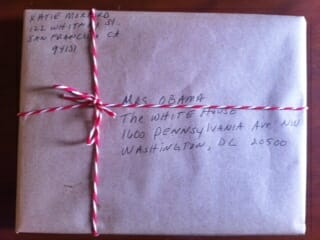 KATIE
122 ST.
SAN FRANCISCO CA
94131
MRS OBAMA
THE WHITE HOUSE
1600 PENNSYLVANIA AVE NW
WASHINGTON, DC 20500